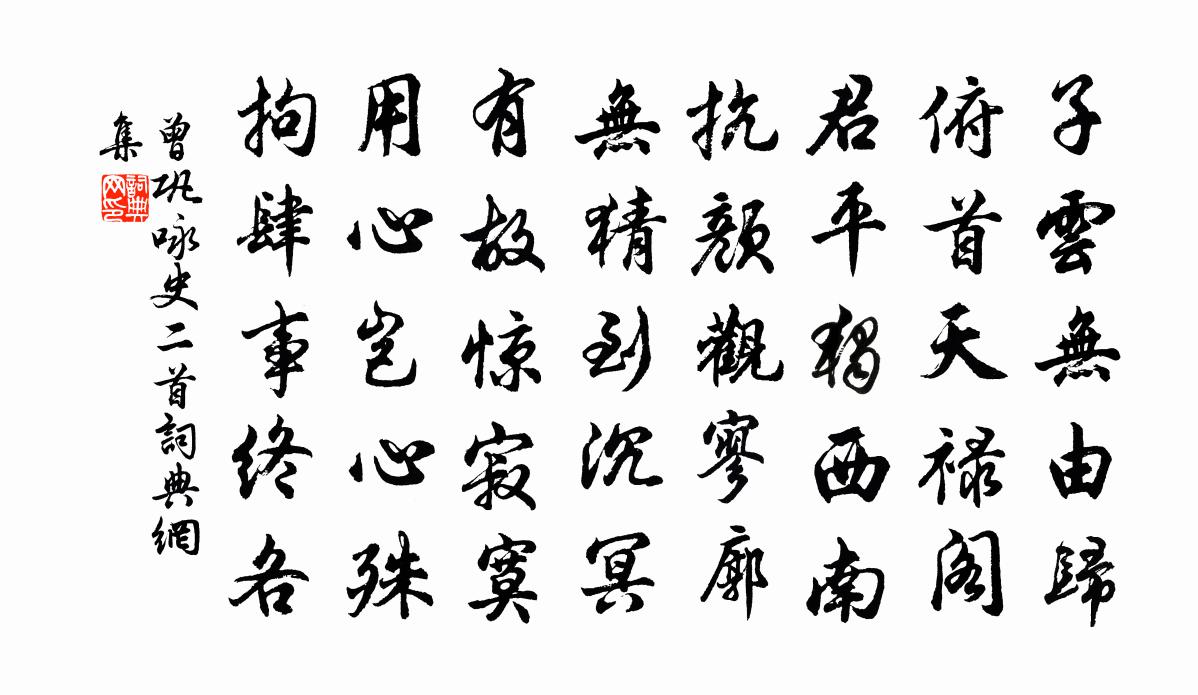 子雲無由歸
俯首天禄阁
君平獨西南
抗顏觀寥廓
無猜到沉冥
有故惊寂寞
用心豈心殊
拘肆事終各
曾巩咏史二首詞典網
集
詞典
网印